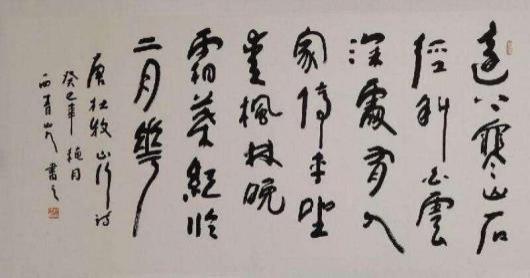 遠上寒山石
徑斜白雲
深處有人
家停車坐
愛楓林晚
霜葉紅於
二月華
唐杜牧山行詩
癸巳年月
西青山人書之